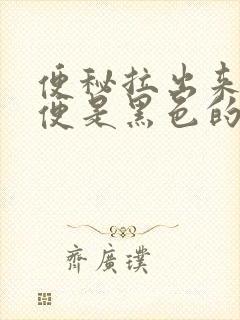 便秘拉出来
便是黑色的
齐廣璞